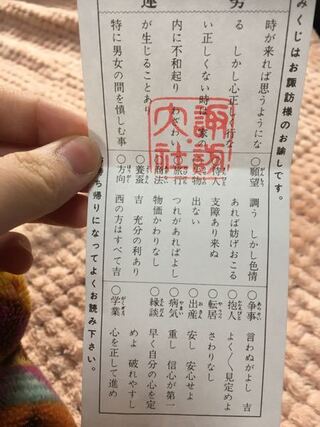 みくじはお諏訪様のお諭しです。
時が来れば思うようにな
る しかし心正しく行な
い正しくない時は家の
内に不和起り わざわい
が生じることあり
特に男女の間を慎しむ事
諏訪
大社
○願望 調う しかし色情
あれば妨げおこる
○待人 支障あり来ぬ
○失物 出ない
○旅行 つれがあればよし
○商法 物価かわりなし
○養蚕 吉 充分の利あり
○方向 西の方はすべて吉
○争事 言わぬがよし 吉
○抱人 よく〱見定めよ
○転居 さわりなし
○出産 安し 安心せよ
○病気 重し 信心が第一
○縁談 早く自分の心を定
めよ 破れやすし
○学業 心を正して進め
ち帰りになってよくお読み下さい。